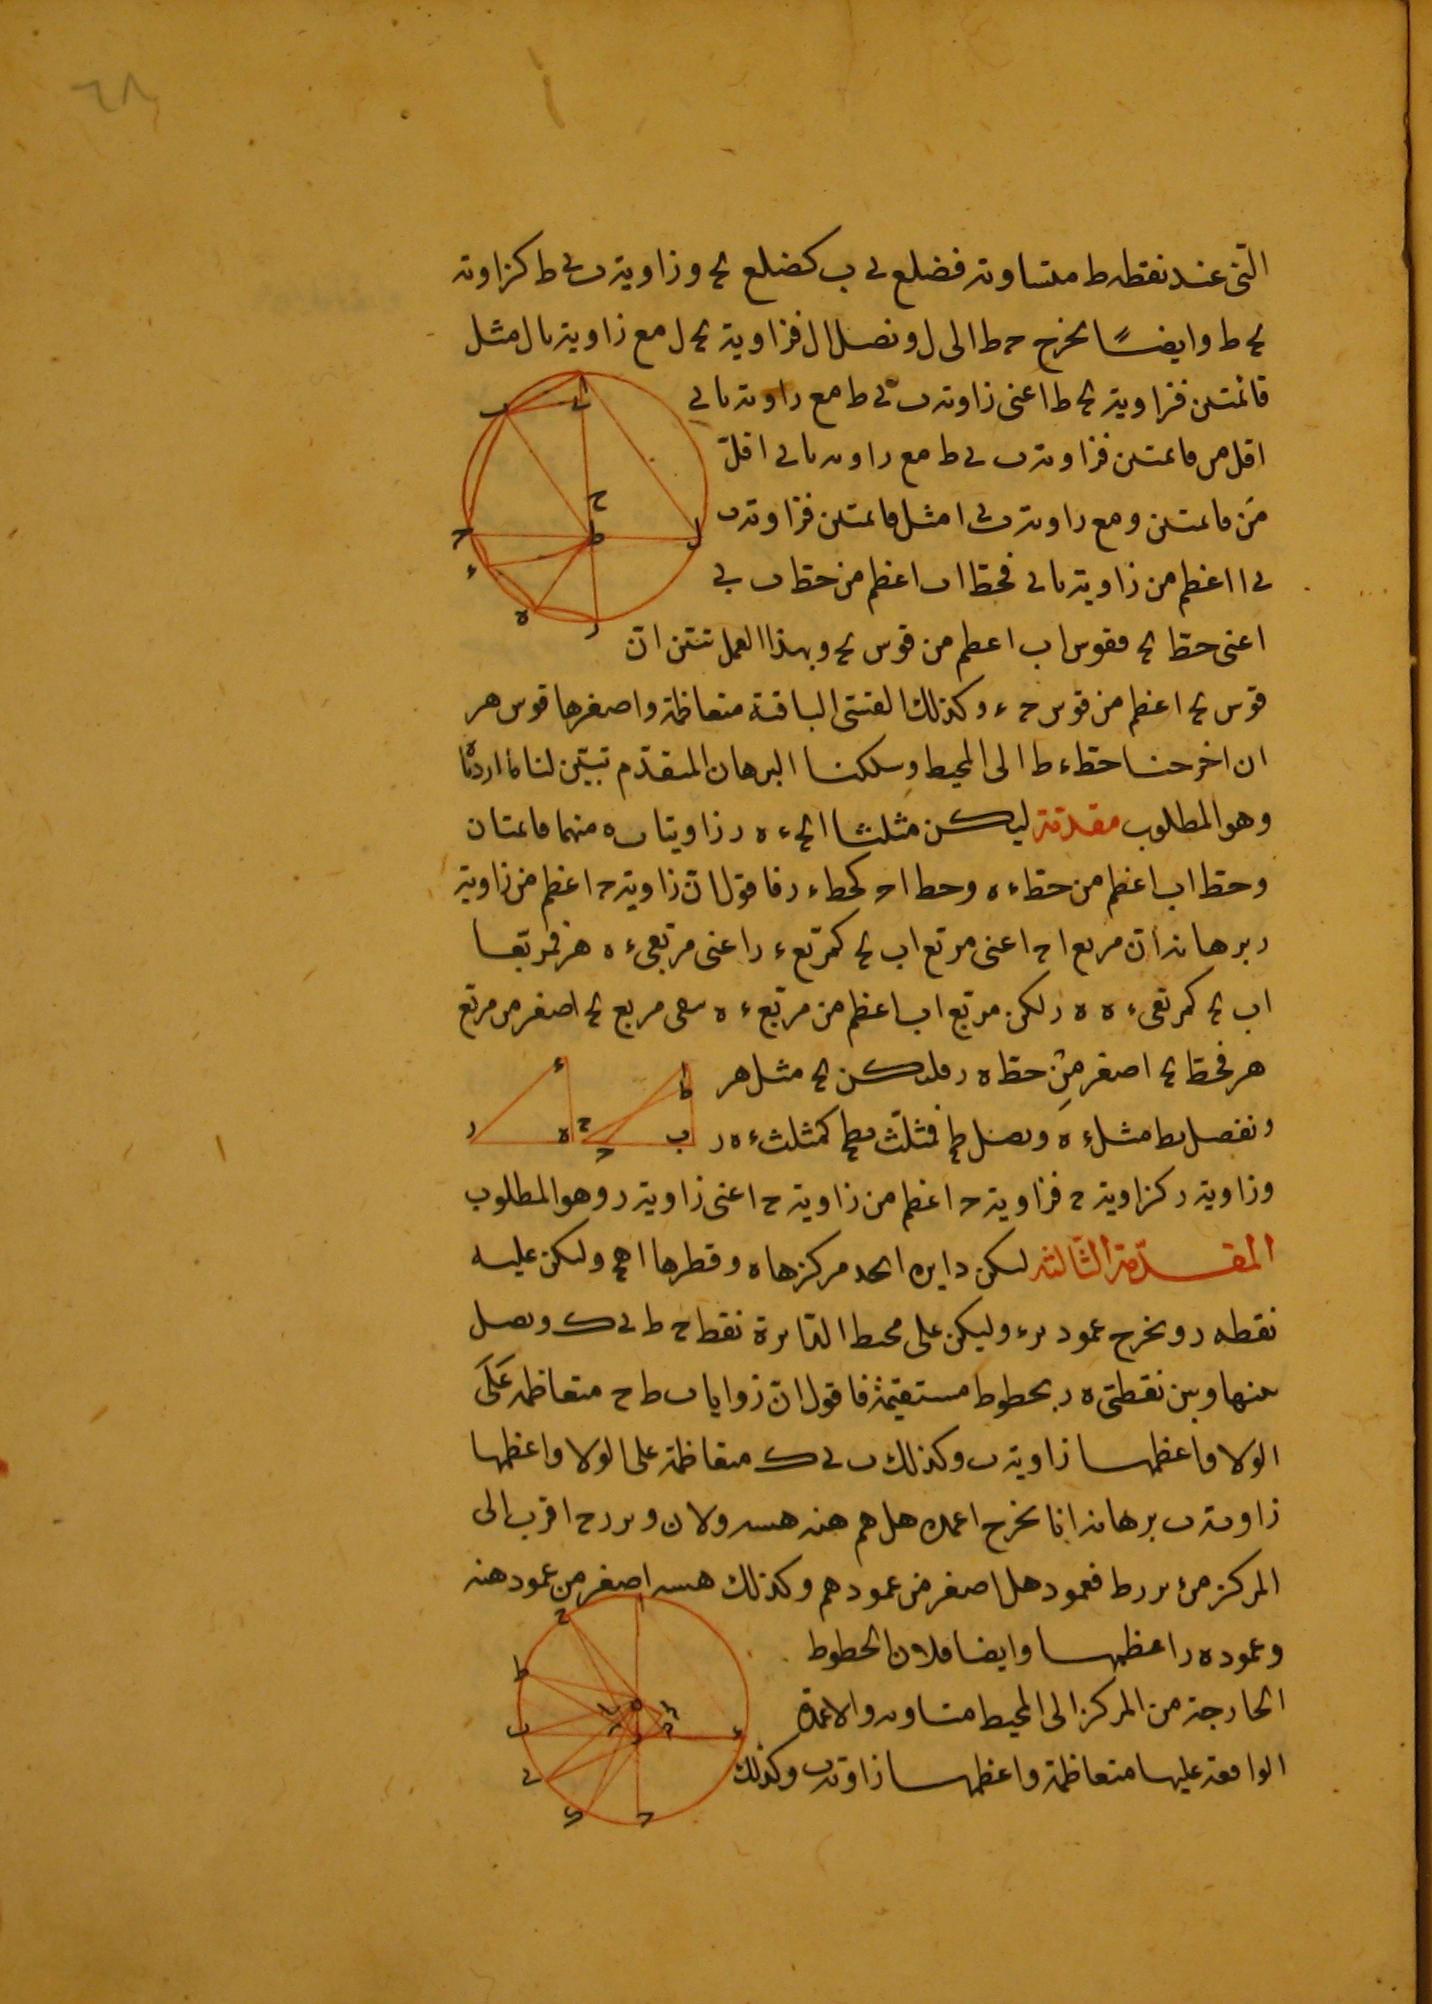 ٦٨
التى عند نقطه ط متساوية فضلع ى ب كضلع ى ح وزاوية ب ى ط كزاوية
ى ح ط وايضًا نخرج ح ط الى ل ونصل ا ل فزاوية ح ل مع زاوية ا ل مثل
قائمتين فزاوية ح ط اعنى زاوية ب ى ط مع زاوية ا ى
اقل من قائمتين فزاوية ب ى ط مع زاوية ا ى اقل
من قائمتين ومع زاوية ب ى ا مثل قائمتين فزاوية ب
ى ا اعظم من زاوية ا ى فخط ا ب اعظم من خط ب ى
اعنى خط ح فقوس اب اعظم من قوس ح وبهذا العمل تبين ان
قوس ح اعظم من قوس ح ء وكذلك القسى الباقية متعاظمة واصغرها قوس هر
ان اخرجنا خط ء ط الى المحيط وسلكنا البرهان المتقدم تبين لنا ما اردنا
وهو المطلوب مقدمة ليكن مثلثا ا ح ء ه ر زاويتا ب ه منهما قائمتان
وخط اب اعظم من خط ء ه وخط ا ح كخط ء ر فاقول ان زاوية ح اعظم من زاوية
ر برهانه ان مربع ا ح اعنى مربع اب ح كمربع ء ر اعنى مربعى ء ه هر فمربعا
اب ح كمربعى ء ه ه ر لكن مربع اب اعظم من مربع ء ه بقى مربع ح اصغر من مربع
هر فخط ح اصغر من خط ه ر فليكن ح مثل هر
ونفصل ب ط مثل ء ه ونصل ط ح فمثلث ب ط ح كمثلث ء ه ر
وزاوية ر كزاوية ح فزاوية ح اعظم من زاوية ح اعنى زاوية ر وهو المطلوب
المقدمة الثالثة ليكن دايره ا ب ح د مركزها ه وقطرها ا ه ح وليكن عليه
نقطه ر ونخرج عمود ب ر ء وليكن على محيط الدائرة نقط ح ط ى ك ونصل
بينها وبين نقطتى ه ر بخطوط مستقيمة فاقول ان زوايا ب ط ح متعاظمة على
الولا واعظمها زاوية ب وكذلك ب ى ك متعاظمة على الولا واعظمها
زاوية ب برهانه انا نخرج اعمدة هل هم هن هس ولان وتر ر ح اقرب الى
المركز من وتر ر ط فعمود هل اصغر من عمود هم وكذلك هس اصغر من عمود هن
وعمود ه ر اعظمها وايضا فلان الخطوط
الخارجة من المركز الى المحيط متساوية والاعمدة
الواقعة عليها متعاظمة واعظمها زاوية ب وكذلك